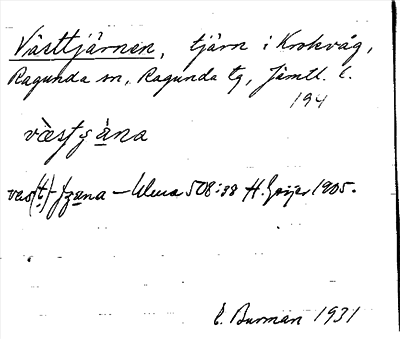 Västtjärnen, tjärn i Krokvåg,
Ragunda sn, Ragunda tg, Jämtl. l.
194
— Ulma 508:38 H. Geijer 1905.
E. Burman 1931